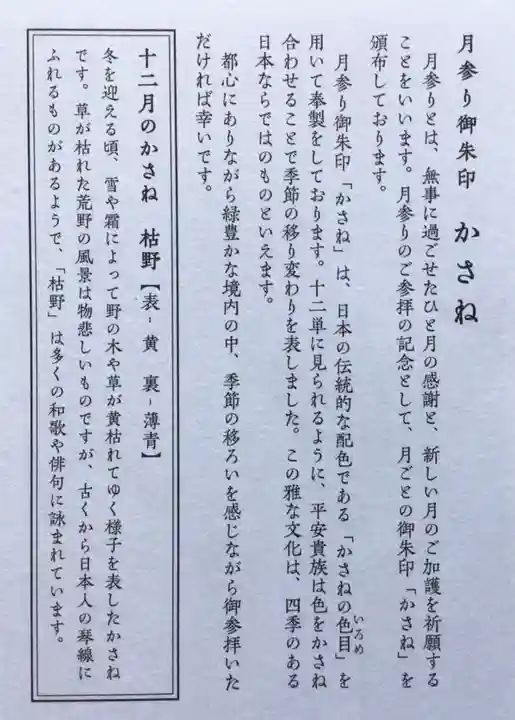 月参り御朱印　かさね
月参りとは、無事に過ごせたひと月の感謝と、新しい月のご加護を祈願する
ことをいいます。月参りのご参拝の記念として、月ごとの御朱印「かさね」を
頒布しております。
月参り御朱印「かさね」は、日本の伝統的な配色である「かさねの色目」を
いろめ
用いて奉製をしております。十二単に見られるように、平安貴族は色をかさね
合わせることで季節の移り変わりを表しました。この雅な文化は、四季のある
日本ならではのものといえます。
都心にありながら緑豊かな境内の中、季節の移ろいを感じながら御参拝いた
だければ幸いです。
十二月のかさね　枯野【表-黄　裏-薄青】
冬を迎える頃、雪や霜によって野の木や草が黄枯れてゆく様子を表したかさね
です。草が枯れた荒野の風景は物悲しいものですが、古くから日本人の琴線に
ふれるものがあるようで、「枯野」は多くの和歌や俳句に詠まれています。